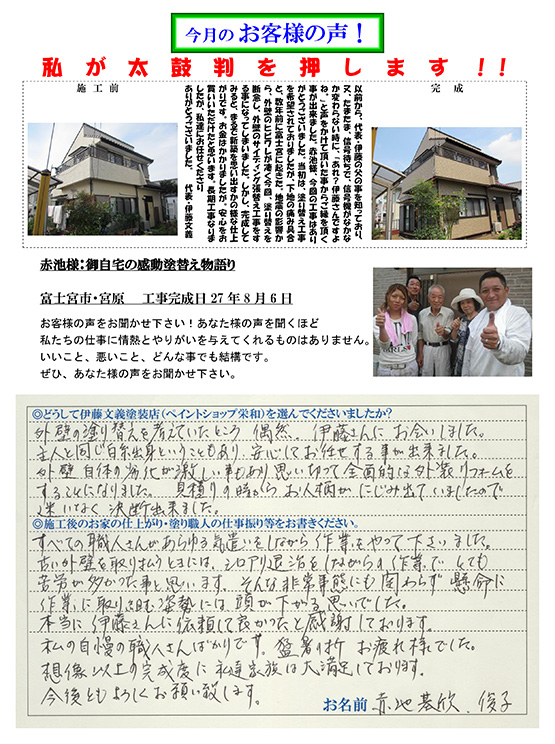 今月の お客様の声！
私が太鼓判を押します!!
施工前
完成
以前から、代表・伊藤の父の事を知っており、
又、たまたま、信号待ちで、信号機がなかな
か変わらない時に、「あれ？伊藤さんですよ
ね。」と声をかけて頂いた事からご縁を頂く
事が出来ました。赤池様、今回の工事はあり
がとうございました。当初は、塗り替え工事
を希望されておりましたが、下地の痛み具合
と、数年前に富士宮に起きた、地震の影響か
ら、外壁のヒビ割れが凄く今回、塗り替えを
断念し、外壁のサイディング張替え工事をす
る事になってしまいました。しかし、完成して
みると、まるで新築を思い出すかの様な仕上
がりです。お金はかかりましたが、安心をお
買いいただけたと思います。長期工事なりま
したが、私達にお任せくださり
ありがとうございました。　代表・伊藤文義
赤池様：御自宅の感動塗替え物語り
富士宮市・宮原　工事完成日27年8月6日
お客様の声をお聞かせ下さい！あなた様の声を聞くほど
私たちの仕事に情熱とやりがいを与えてくれるものはありません。
いいこと、悪いこと、どんな事でも結構です。
ぜひ、あなた様の声をお聞かせ下さい。
◎どうして伊藤文義塗装店（ペイントショップ栄和）を選んでくださいましたか？
外壁の塗り替えを考えていたところ 偶然。伊藤さんに お会いしました。
主人と同じ白糸出身ということもあり、安心してお任せする事が出来ました。
外壁自体の劣化が激しい事もあり思い切って全面的な外装リフォームを
することになりました。 見積りの時からお人柄がにじみ出ていましたので
迷いなく決断出来ました。
◎施工後のお家の仕上がり・塗り職人の仕事振り等をお書きください。
すべての職人さんがあらゆる気遣いをしながら作業をやって下さいました。
古い外壁を取りはらうときには、シロアリ退治をしながらの作業で とても
苦労が多かった事と思います。そんな非常事態にも関わらず懸命に
作業に取り組む姿勢には頭が下がる思いでした。
本当に伊藤さんに依頼して良かったと感謝しております。
私の自慢の職人さんばかりです。猛暑の折 お疲れ様でした。
想像以上の完成度に私達家族は大満足しております。
今後ともよろしくお願い致します。
お名前 赤池基欣、俊子